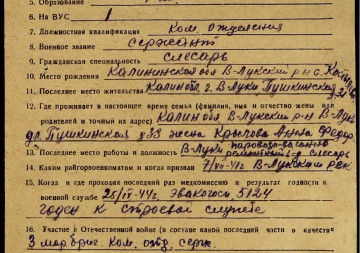 5. Образование
6. На ВУС 1
7. Должностная квалификация Ком. отделения
8. Военное звание сержант
9. Гражданская специальность слесарь
10. Место рождения Калининская обл В-Лукский р-н с.
11. Последнее место жительства Калинобл г. В-Луки Пушкинская 33
12. Где проживает в настоящее время семья (фамилия, имя и отчество жены или
родителей и точный их адрес) Калинобл В-Лукский р-н В-Луки
ул. Пушкинская д 33 жена Крылова Анна
13. Последнее место работы и должность В-Луки паровозо-вагоно
ремонтный з-д слесарь
14. Каким райгорвоенкоматом и когда призван 7/VII-41г В-Лукский рвк
15. Когда и где проходил последний раз медкомиссию и результат годности к
военной службе 25/IV-44г. Эвакогосп. 5124
годен к строевой службе
16. Участие в Отечественной войне (в составе какой последней части в качестве
3 мор бриг. Ком. отд. серж.